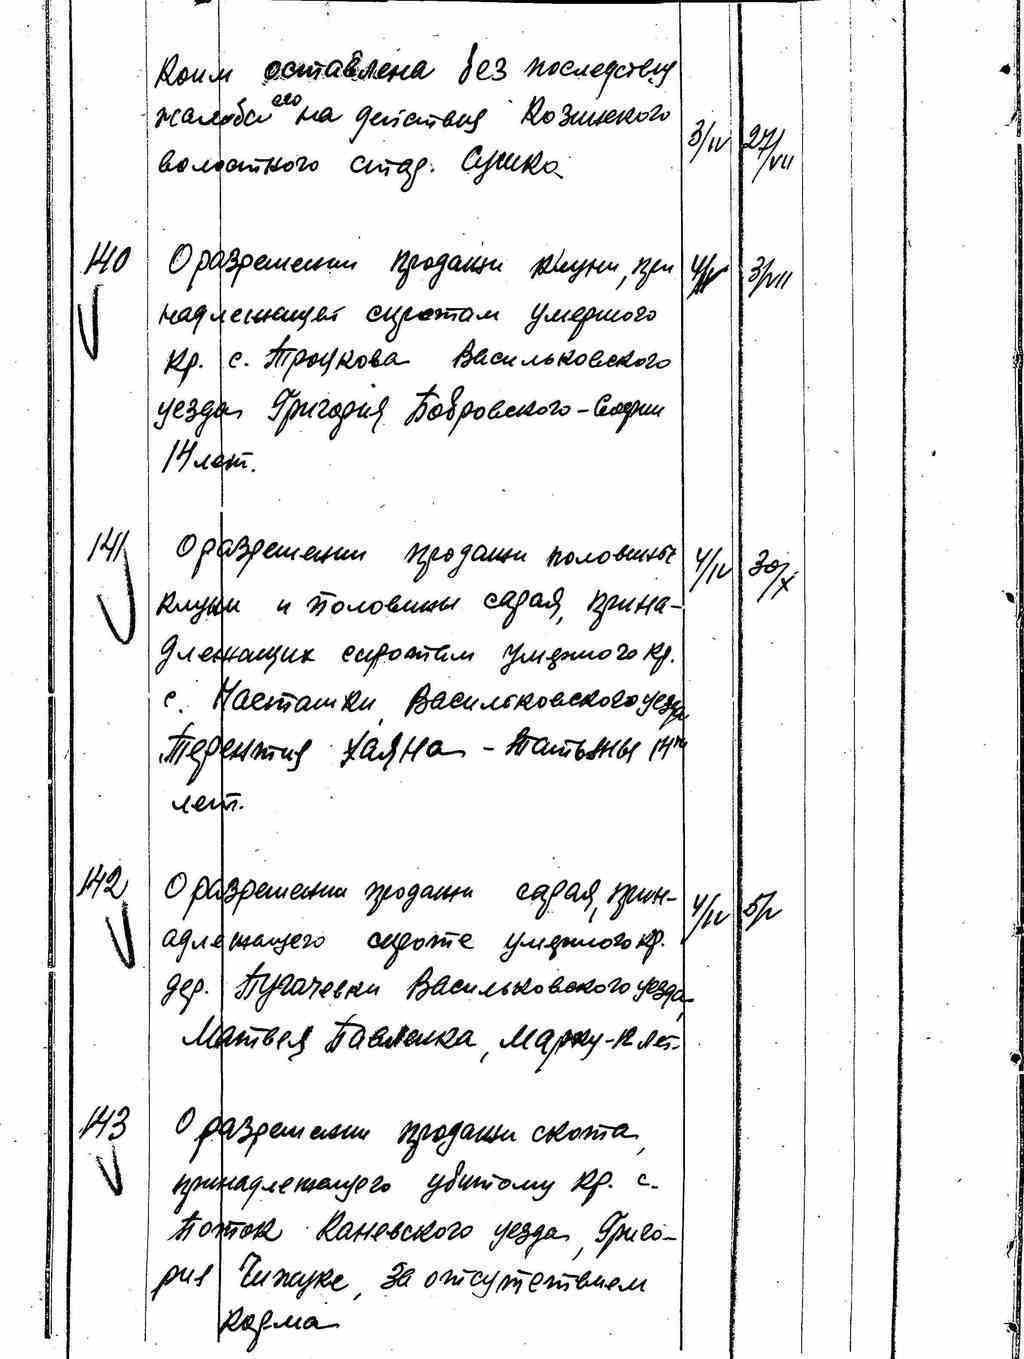 коим оставлена без последствия
жалоба его на действия Козинского
волостного стар. Сушка 3/IV 27/VII
140 О разрешении продажи клуни, при 4/IV 3/VII
надлежащей сиротам умершого
кр. с. Троцкова Васильковского
уезда Григория Бобровского -
14 лет.
141 О разрешении продажи половины 4/IV 30/X
клуни и половины сарая, прина-
длежащих сиротам умершого кр.
с. Насташки, Васильковского уезда
Терентия Хаяна - Татьяны 14ти
лет.
142 О разрешении продажи сарая, прин- 4/IV 5/V
адлежащего сироте умершого кр.
дер. Пугачевки Васильковского уезда,
Матвея Павленка, Марку - 12 лет.
143 О разрешении продажи скота,
принадлежащего убитому кр. с.
Поток Каневского уезда, Григо-
рия Чижуке, за отсутствием
корма